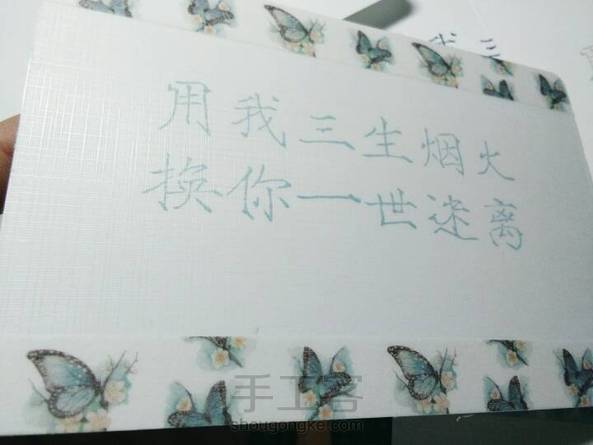 用我三生烟火
换你一世迷离
我三
手工客
shougongke.com